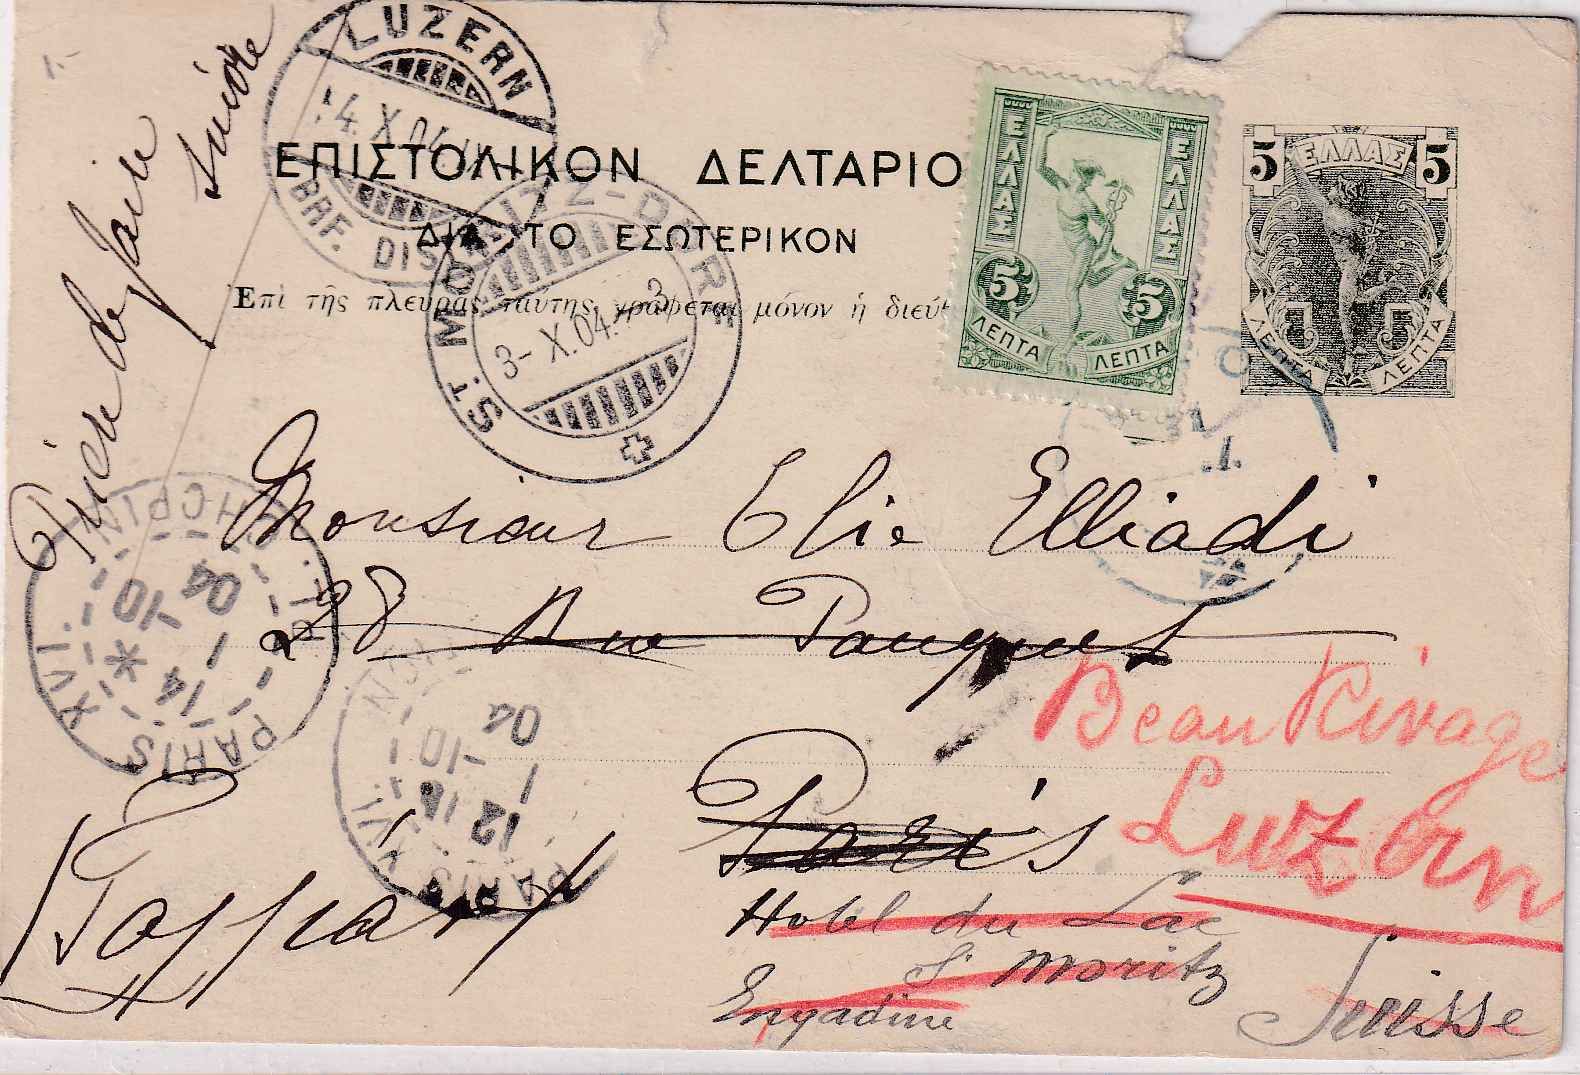 Prière de faire
suivre
LUZERN
4.X.04
BRF. DIST.
ΕΠΙΣΤΟΛΙΚΟΝ ΔΕΛΤΑΡΙΟ
ΔΙΑ ΤΟ ΕΣΩΤΕΡΙΚΟΝ
Ἐπὶ τῆς πλευρᾶς ταύτης γράφεται μόνον ἡ διεύθ
ΕΛΛΑΣ
ΕΛΛΑΣ
5 5
ΛΕΠΤΑ ΛΕΠΤΑ
5 ΕΛΛΑΣ 5
5
ΛΕΠΤΑ ΛΕΠΤΑ
ST. MORITZ-DORF
3-X.04. 3
Monsieur Elie Elliadi
28 Rue Pauquet
Paris
(Γαλλίαν)
Beau Rivage
Luzern
Hotel du Lac
St Moritz
Engadine
Suisse
PARIS XVI.
14
1 -10
04
PARIS XVI
12
1 -10
04